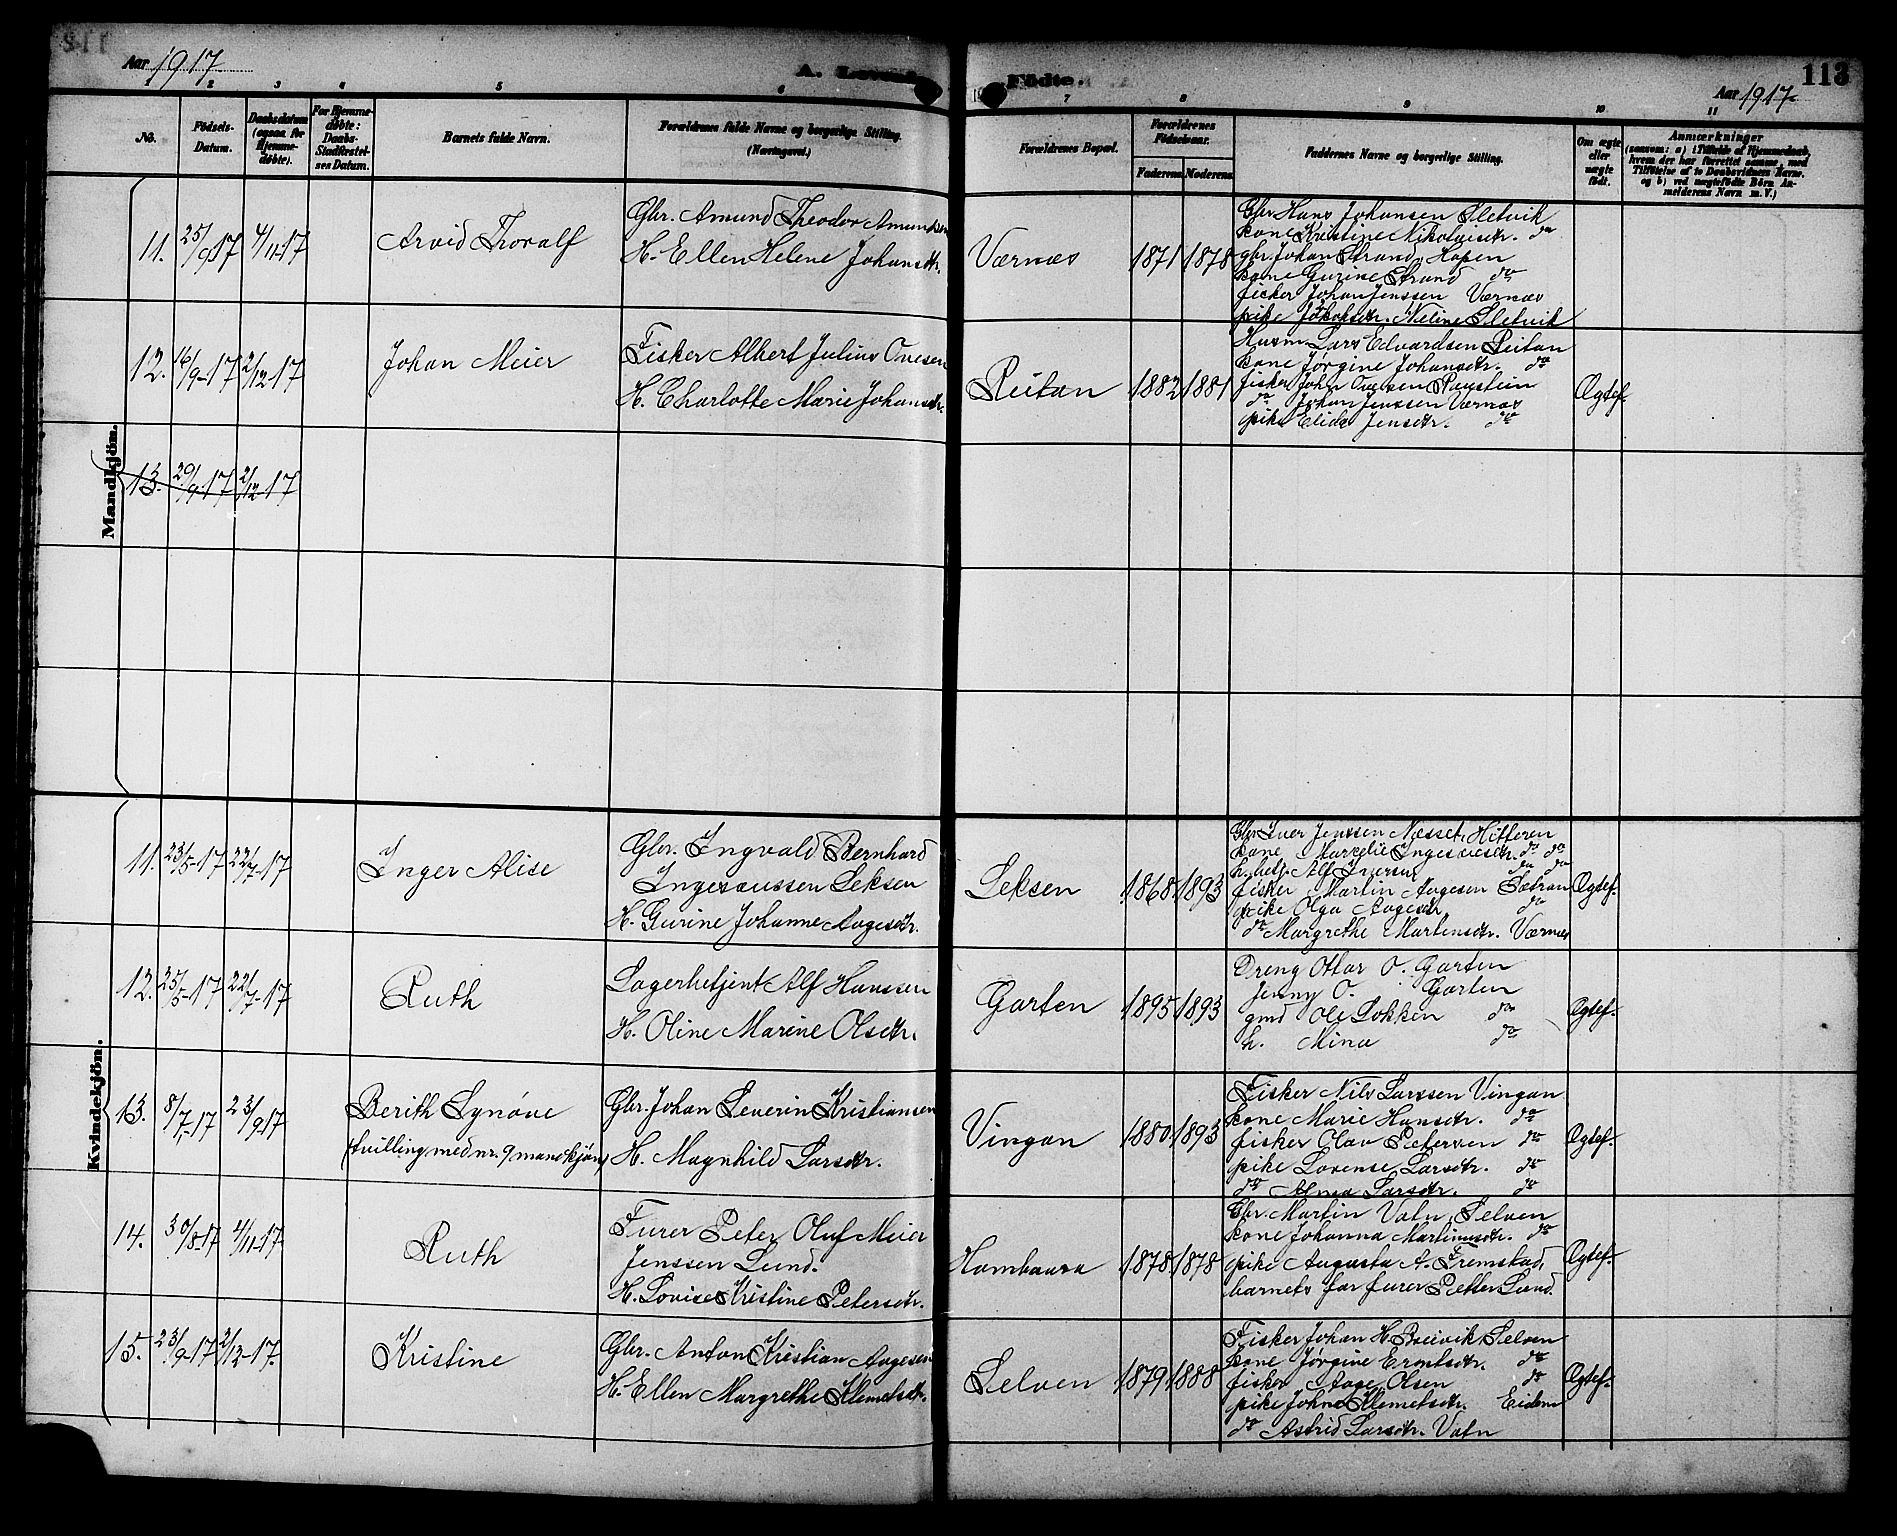 Aar 1917
A. Levende
Födte.
113
Aar 1917
2 3 4 5 6
7 8 9 10 11
No.
Födsels-
Datum.
Daabsdatum
(ogsaa for
Hjemme-
døbte).
For Hjemme-
døbte:
Daabs-
Stadfæstel-
ses Datum.
Barnets fulde Navn.
Forældrenes fulde Navne og borgerlige Stilling.
(Næringsvei.)
Forældrenes Bopæl.
Forældrenes
Födselsaar.
Faderens Moderens
Faddernes Navne og borgerlige Stilling.
Om ægte
eller
uægte
født.
Anmærkninger
(saasom: a) i Tilfælde af Hjemmedaab,
hvem der har forrettet samme, med
Tilføielse af to Daabsvidners Navne.
og b) ved uægtefødte Börn An-
melderens Navn m. V.)
Mandkjön.
11. 25/9 17 4/11-17
Arvid Thoralf
Gbr. Amund Theodor Amundsen
H. Ellen Helene Johansdtr.
Værnæs 1871 1878
Gbr Hans Johansen Sletvik
kone Kristine Nikolaisdtr. do
gbr. Johan Strand, Hopen
kone Gurine Strand do
fisker Johan Jenssen Værnæs
pike Neline Sletvik
12. 16/9-17 2/12-17
Johan Meier
Fisker Albert Julius Ovesen
H. Charlotte Marie Johansdtr.
Reitan 1882 1881
Husm. Lars Edvardsen Reitan
kone Jørgine Johansdtr. do
fisker John Ovesen
do Johan Jenssen Værnæs
pike Elida Jensdtr. do
Ægtef.
13. 29/9-17 2/12-17
Kvindekjön.
11. 23/5-17 22/7-17
Inger Alise
Gbr. Ingvald Bernhard
Leksen
H. Gurine Johanne Aagesdtr.
Leksen 1868 1893
Gbr Iver Jenssen Næsset, Hitteren
kone do do
Alf Iversen do do
fisker Martin Aagesen Sætran
pike Olga Aagesdtr. do
do Margrethe Martensdtr. Værnæs
Ægtef.
12. 25/5-17 22/7-17
Ruth
Lagerbetjent Alf Hanssen
H. Oline Marine Olsdtr.
Garten 1895 1893
Dreng Ottar O. Garten
Jenny O. Garten
gmd Ole Løkken do
h. Mina do
Ægtef.
13. 8/7-17 23/9 17
Berith Synøve
(tvilling med nr. 9 mandkjøn)
Gbr. Johan Severin Kristiansen
H. Magnhild Larsdtr.
Vingan 1880 1893
Fisker Nils Larssen Vingan
kone Marie Hansdtr. do
fisker Olav Petersen do
pike Lovense Larsdtr. do
do Alma Larsdtr. do
Ægtef.
14. 30/8-17 4/11-17
Ruth
Furer Peter Oluf Meier
Jenssen Lund.
H. Lovise Kristine Petersdtr.
Hambaara 1878 1878
Gbr. Martin Vatn, Selven
kone Johanna Martinusdtr. do
pike Augusta A. Fremstad,
barnets far furer Petter Lund.
Ægtef.
15. 23/9-17 2/12-17.
Kristine
Gbr. Anton Kristian Aagesen
H. Ellen Margrethe Klemetsdtr.
Selven 1879 1888
Fisker Johan H. Breivik, Selven
kone Jørgine Erentsdtr. do
fisker Aage Olsen do
pike Klemetsdtr. Eidem
do Astrid Larsdtr. Vatn
Ægtef.